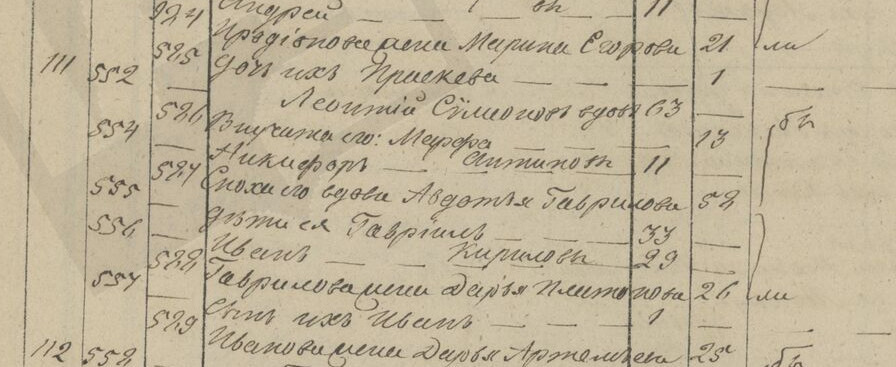 524 Андрей — — — въ 11 —
525 Иродіонова жена Марина Егорова 21 ли
111 552 дочь ихъ Праскева — — 1
526 Леонтій Сѵмеоновъ вдовъ 63 —
554 Внучата его: Марфа — — — 13 бъ
527 Никифоръ — Антиповъ 11 —
555 Сноха его вдова Авдотья Гаврилова 52
556 дѣти ея Гавріилъ — — 33 —
528 Иванъ — — Кириловы 29 —
557 Гаврилова жена Дарья Платонова 26 ли
529 сынъ ихъ Иванъ — — — 1 —
112 558 Иванова жена Дарья Артемьева 25 бъ